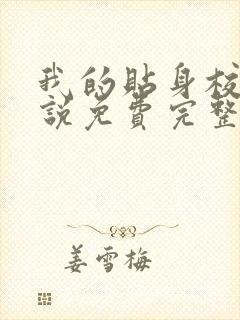 我的贴身校
说免费完整
姜雪梅